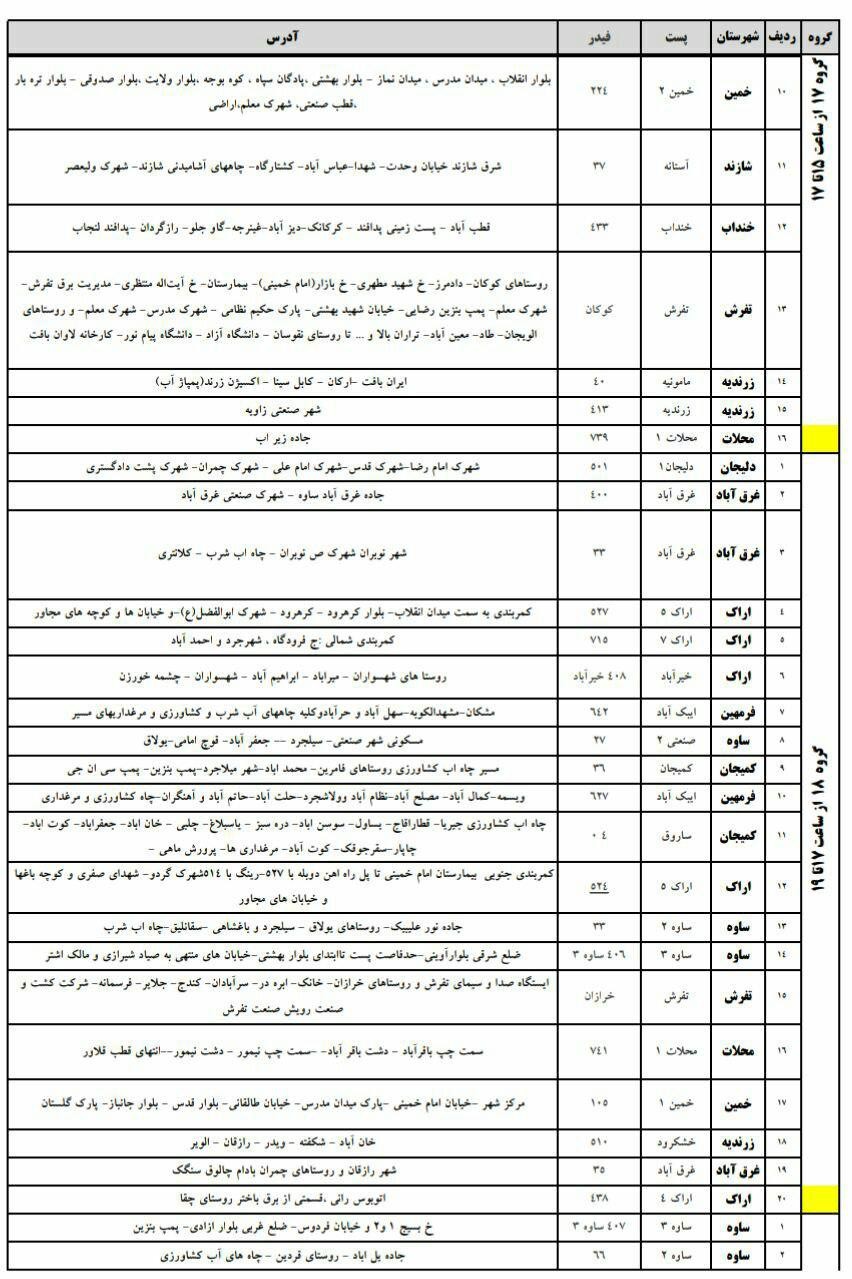 گروه ردیف شهرستان پست فیدر آدرس
گروه ۱۷ از ساعت ۱۵تا ۱۷
۱۰ خمین خمین ۲ ۲۲٤ بلوار انقلاب ، میدان مدرس ، میدان نماز - بلوار بهشتی ،پادگان سپاه ، کوه بوجه ،بلوار ولایت ،بلوار صدوقی - بلوار تره بار
،قطب صنعتی، شهرک معلم،اراضی
۱۱ شازند آستانه ۳۷ شرق شازند خیابان وحدت- شهدا-عباس آباد- کشتارگاه- چاههای آشامیدنی شازند- شهرک ولیعصر
۱۲ خنداب خنداب ٤۳۳ قطب آباد - پست زمینی پدافند - کرکانک-دیز آباد-غینرجه-گاو جلو- رازگردان -پدافند لنجاب
۱۳ تفرش تفرش کوکان روستاهای کوکان- دادمرز- خ شهید مطهری- خ بازار(امام خمینی)- بیمارستان- خ آیت‌اله منتظری- مدیریت برق تفرش-
شهرک معلم- پمپ بنزین رضایی- خیابان شهید بهشتی- پارک حکیم نظامی - شهرک مدرس- شهرک معلم- و روستاهای
الویجان- طاد- معین آباد- تراران بالا و ... تا روستای نقوسان - دانشگاه آزاد - دانشگاه پیام نور- کارخانه لاوان بافت
۱٤ زرندیه مامونیه ٤۰ ایران بافت -ارکان - کابل سینا - اکسیژن زرند(پمپاژ آب)
۱۵ زرندیه زرندیه ٤۱۳ شهر صنعتی زاویه
۱٦ محلات محلات ۱ ۷۳۹ جاده زیر اب
گروه ۱۸ از ساعت ۱۷تا ۱۹
۱ دلیجان دلیجان۱ ۵۰۱ شهرک امام رضا-شهرک قدس-شهرک امام علی - شهرک چمران- شهرک پشت دادگستری
۲ غرق آباد غرق آباد ٤۰۰ جاده غرق آباد ساوه - شهرک صنعتی غرق آباد
۳ غرق آباد غرق آباد ۳۳ شهر نوبران شهرک ص نوبران - چاه اب شرب - کلانتری
٤ اراک اراک ۵ ۵۲۷ کمربندی به سمت میدان انقلاب- بلوار کرهرود - کرهرود - شهرک ابوالفضل(ع)-و خیابان ها و کوچه های مجاور
۵ اراک اراک ۷ ۷۱۵ کمربندی شمالی :ج فرودگاه ، شهرجرد و احمد آباد
٦ اراک خیرآباد ٤۰۸ خیرآباد روستا های شهسواران - میراباد - ابراهیم آباد - شهسواران - چشمه خورزن
۷ فرمهین ایبک آباد ٦٤۲ مشکان-مشهدالکوبه-سهل آباد و حرآبادوکلیه چاههای آب شرب و کشاورزی و مرغداریهای مسیر
۸ ساوه صنعتی ۲ ۲۷ مسکونی شهر صنعتی- سیلجرد -- جعفر آباد- قوچ امامی-یولاق
۹ کمیجان کمیجان ۳٦ مسیر چاه اب کشاورزی روستاهای فامرین- محمد اباد-شهر میلاجرد-پمپ بنزین- پمپ سی ان جی
۱۰ فرمهین ایبک آباد ٦۲۷ ویسمه-کمال آباد- مصلح آباد-نظام آباد وولاشجرد-حلت آباد-حاتم آباد و آهنگران-چاه کشاورزی و مرغداری
۱۱ کمیجان ساروق ۰٤ چاه اب کشاورزی جیریا- قطاراقاج- یساول- سوسن اباد- دره سبز - یاسبلاغ- چلبی - خان اباد- جعفراباد- کوت اباد-
چاپار-سقرجوقک- کوت آباد- مرغداری ها- پرورش ماهی -
۱۲ اراک اراک ۵ ۵۲٤ کمربندی جنوبی بیمارستان امام خمینی تا پل راه اهن دوبله با ۵۲۷-رینگ با ۵۱٤شهرک گردو- شهدای صفری و کوچه باغها
و خیابان های مجاور
۱۳ ساوه ساوه ۲ ۳۳ جاده نور علیبیک- روستاهای یولاق - سیلجرد و باغشاهی -سقانلیق-چاه اب شرب
۱٤ ساوه ساوه ۳ ٤۰٦ ساوه ۳ ضلع شرقی بلوارآوینی-حدفاصت پست تاابتدای بلوار بهشتی-خیابان های منتهی به صیاد شیرازی و مالک اشتر
۱۵ تفرش تفرش خرازان ایستگاه صدا و سیمای تفرش و روستاهای خرازان- خانک- ابره در- سرآبادان- کندج- جلایر- فرسمانه- شرکت کشت و
صنعت رویش صنعت تفرش
۱٦ محلات محلات ۱ ۷٤۱ سمت چپ باقرآباد - دشت باقر آباد- -سمت چپ نیمور - دشت نیمور--انتهای قطب قلاور
۱۷ خمین خمین ۱ ۱۰۵ مرکز شهر -خیابان امام خمینی -پارک میدان مدرس- خیابان طالقانی- بلوار قدس - بلوار جانباز- پارک گلستان
۱۸ زرندیه خشکرود ۵۱۰ خان آباد - شکفته - ویدر - رازقان - الویر
۱۹ غرق آباد غرق آباد ۳۵ شهر رازقان و روستاهای چمران بادام چالوق سنگک
۲۰ اراک اراک ٤ ٤۳۸ اتوبوس رانی ،قسمتی از برق باختر روستای چقا
۱ ساوه ساوه ۳ ٤۰۷ ساوه ۳ خ بسیج ۱ و۲ و خیابان فردوس- ضلع غربی بلوار ازادی- پمپ بنزین
۲ ساوه ساوه ۲ ٦٦ جاده یل اباد - روستای قردین - چاه های آب کشاورزی